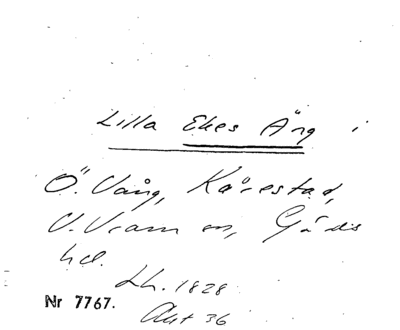 Lilla Ekes Äng i
Ö. Vång, Kårestad,
V. Vram sn, Gärds
hd.
Lh. 1828
Nr 7767.
Akt 36